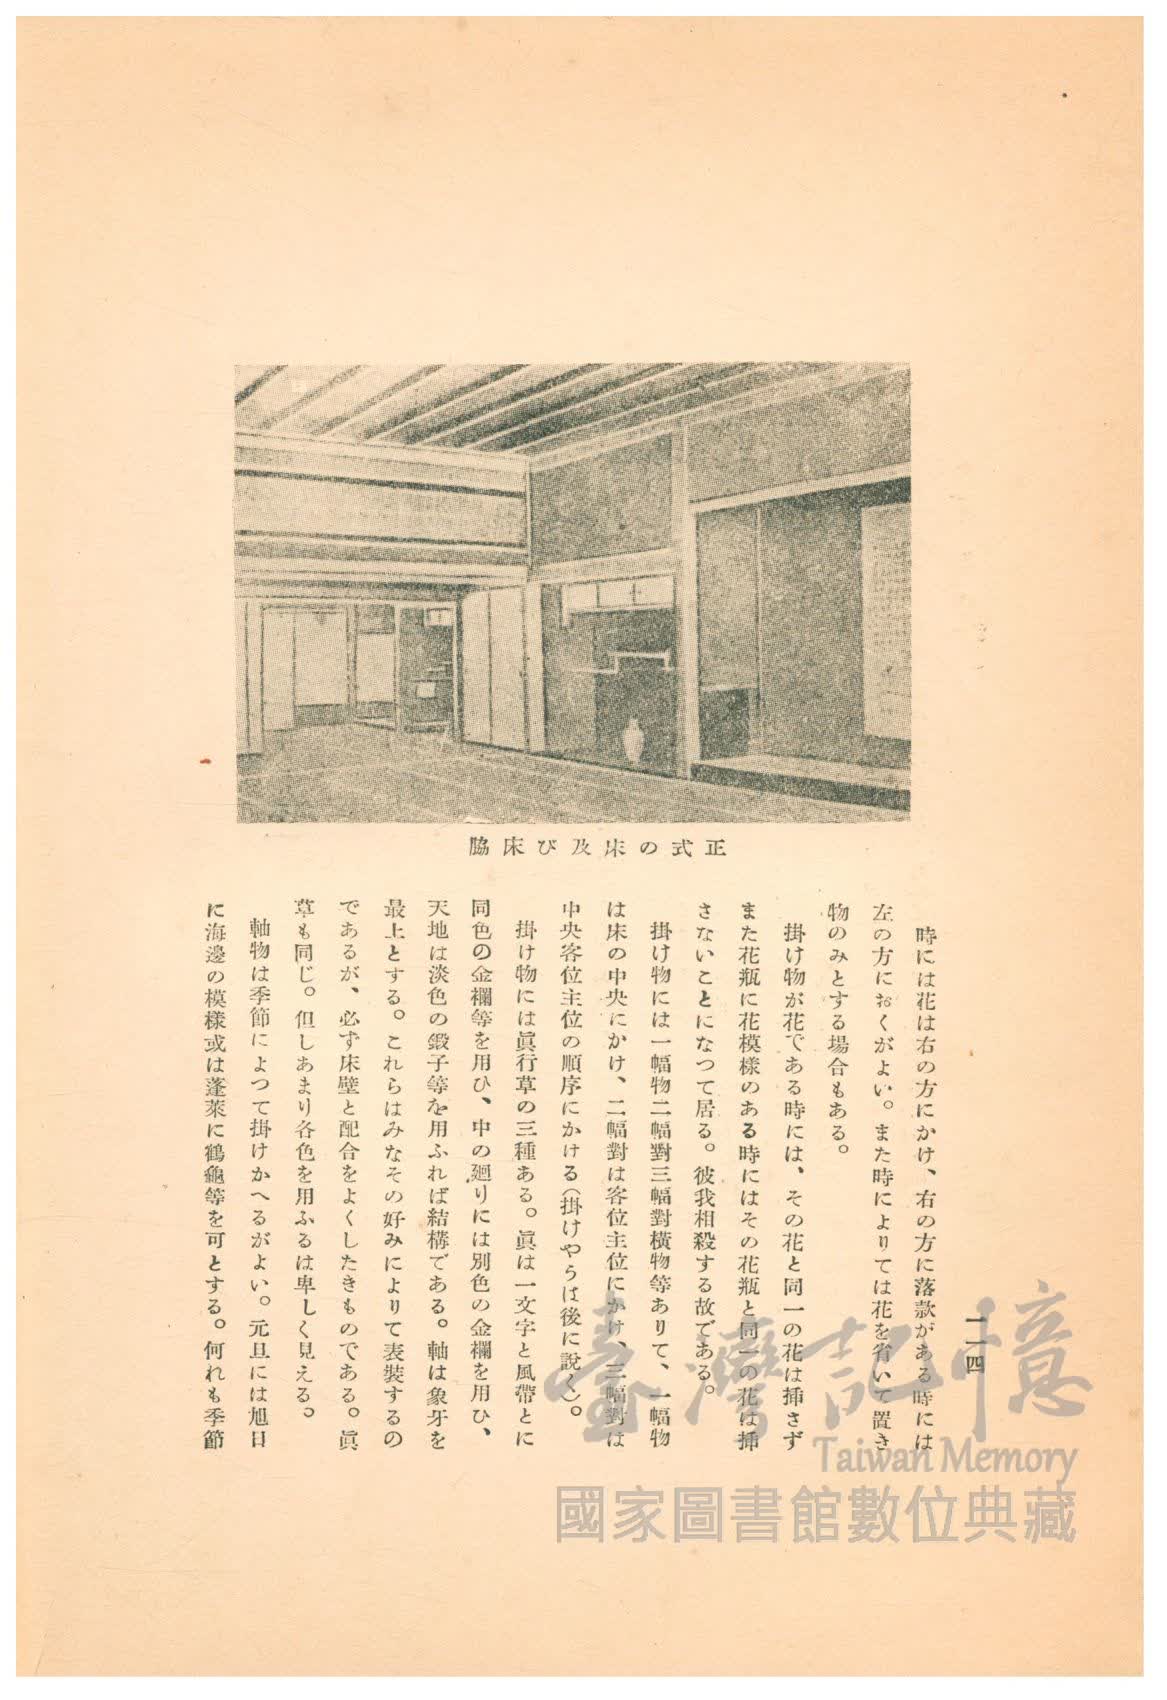 正式の床及び床脇
一一四
時には花は右の方にかけ、右の方に落款がある時には
左の方におくがよい。また時によりては花を省いて置き
物のみとする場合もある。
掛け物が花である時には、その花と同一の花は挿さず
また花瓶に花模樣のある時にはその花瓶と同一の花は挿
さないことになつて居る。彼我相殺する故である。
掛け物には一幅物二幅對三幅對橫物等ありて、一幅物
は床の中央にかけ、二幅對は客位主位にかけ、三幅對は
中央客位主位の順序にかける(掛けやうは後に說く)。
掛け物には眞行草の三種ある。眞は一文字と風帶とに
同色の金襴等を用ひ、中の廻りには別色の金襴を用ひ、
天地は淡色の緞子等を用ふれば結構である。軸は象牙を
最上とする。これらはみなその好みによりて表裝するの
であるが、必ず床壁と配合をよくしたきものである。眞
草も同じ。但しあまり各色を用ふるは卑しく見える。
軸物は季節によつて掛けかへるがよい。元旦には旭日
に海邊の模樣或は蓬萊に鶴龜等を可とする。何れも季節
臺灣記憶
Taiwan Memory
國家圖書館數位典藏